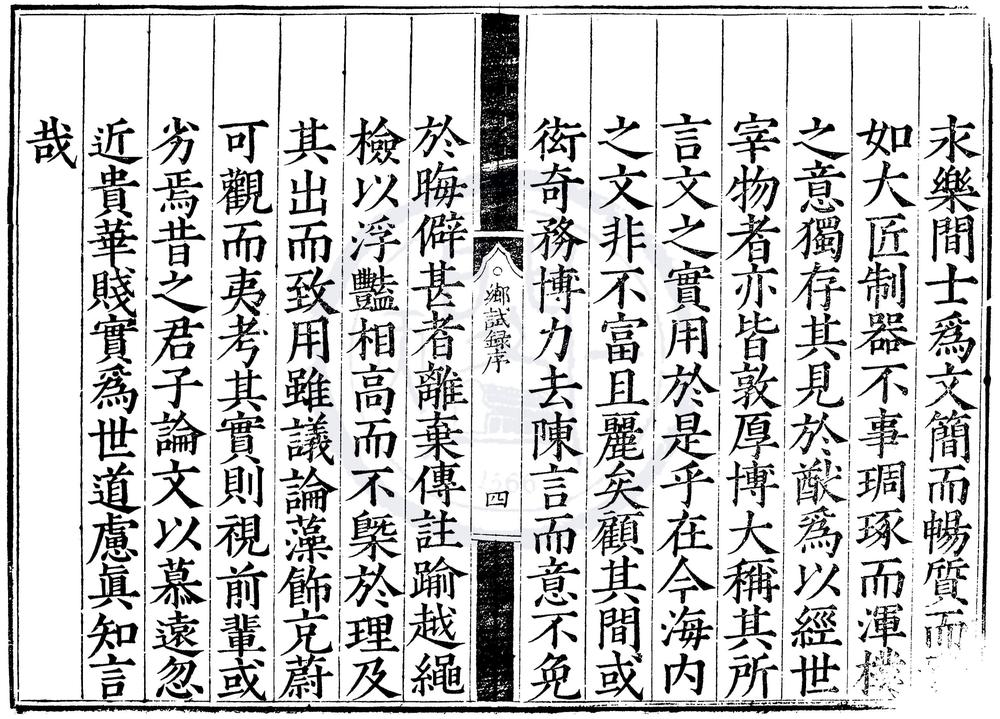 永樂間士爲文簡而暢質而
如大匠制器不事琱琢而渾樸
之意獨存其見於猷爲以經世
宰物者亦皆敦厚博大稱其所
言文之實用於是乎在今海内
之文非不富且麗矣顧其間或
衒奇務博力去陳言而意不免
鄉試録序
四
於晦僻甚者離棄傳註踰越繩
檢以浮豔相高而不槩於理及
其出而致用雖議論藻飾克蔚
可觀而夷考其實則視前輩或
劣焉昔之君子論文以慕遠忽
近貴華賤實爲世道慮眞知言
哉